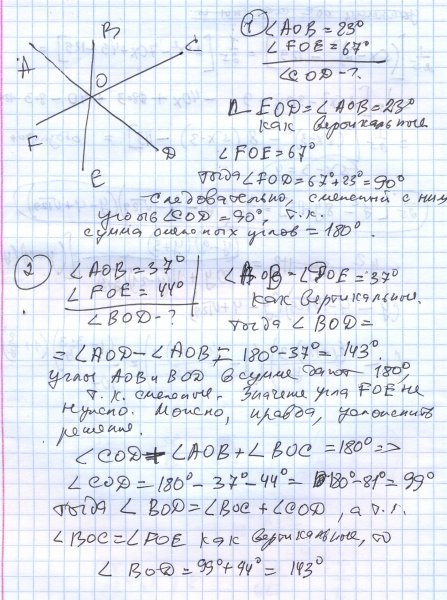 B
C
A
O
F
D
E
① ∠AOB = 23°
∠FOE = 67°
∠COD - ?
∠EOD = ∠AOB = 23°
как вертикальные
∠FOE = 67°
тогда ∠FOD = 67° + 23° = 90°
следовательно, смежный с ним
угол ∠COD = 90°, т.к.
сумма смежных углов = 180°.
② ∠AOB = 37°
∠FOE = 44°
∠BOD - ?
∠AOB = ∠DOE = 37°
как вертикальные.
тогда ∠BOD =
= ∠AOD - ∠AOB = 180° - 37° = 143°.
углы AOB и BOD в сумме дают 180°,
т.к. смежные. Значение угла FOE не
нужно. Можно, правда, усложнить
решение.
∠COD + ∠AOB + ∠BOC = 180° =>
∠COD = 180° - 37° - 44° = 180° - 81° = 99°
тогда ∠BOD = ∠BOC + ∠COD, а т.к.
∠BOC = ∠FOE как вертикальные, то
∠BOD = 99° + 44° = 143°